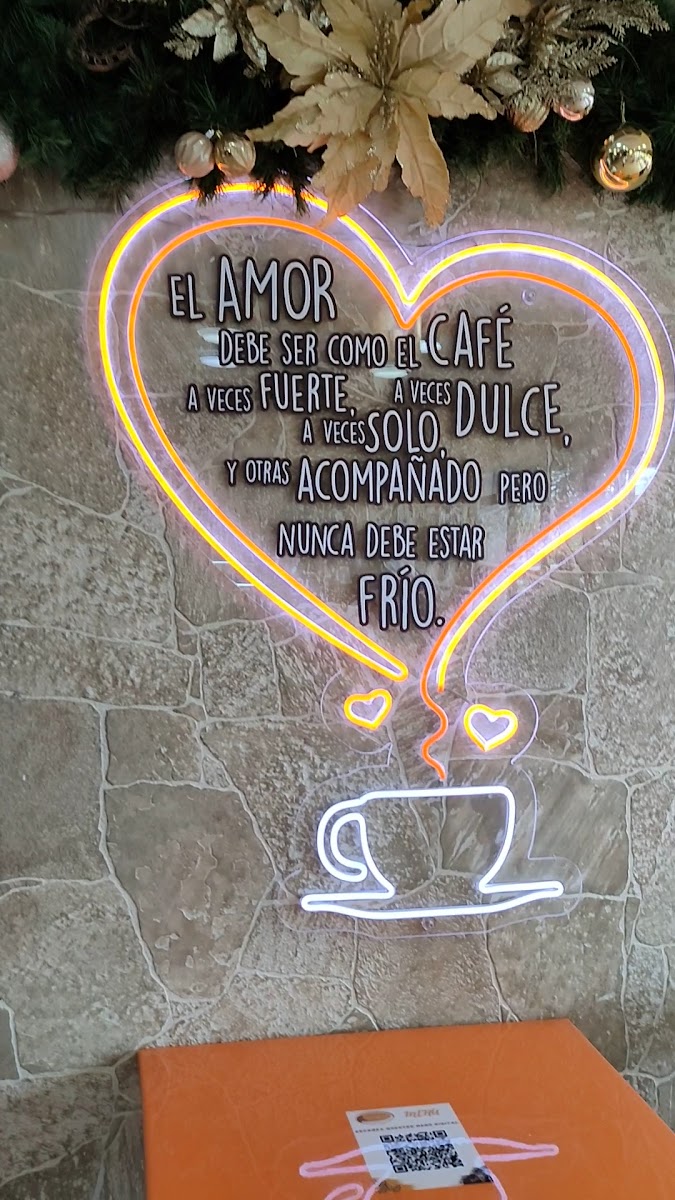 EL AMOR
DEBE SER COMO EL CAFÉ
A VECES FUERTE, A VECES DULCE,
A VECES SOLO,
Y OTRAS ACOMPAÑADO PERO
NUNCA DEBE ESTAR
FRÍO.